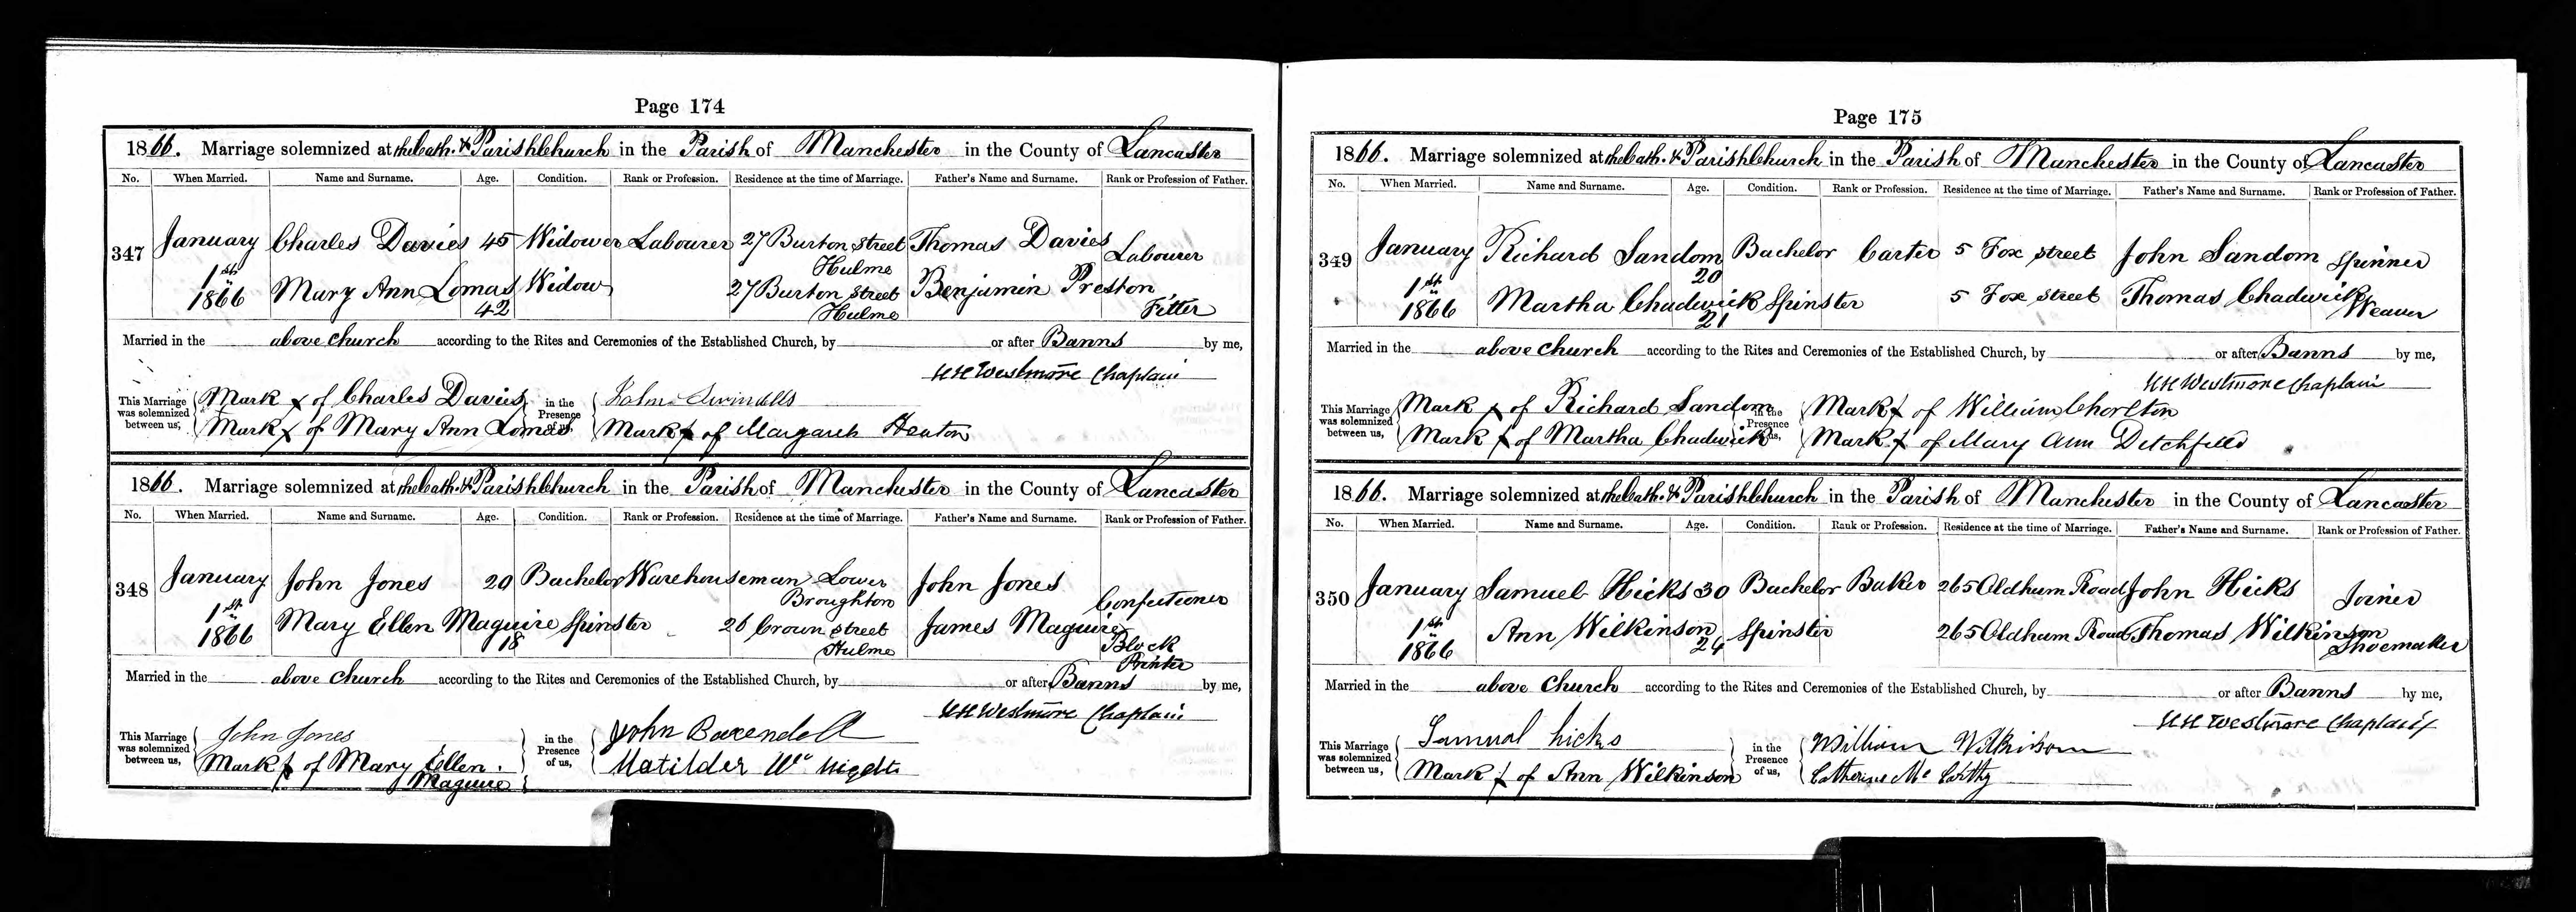 Page 174
1866. Marriage solemnized at the Cath. & Parish Church in the Parish of Manchester in the County of Lancaster
No. When Married. Name and Surname. Age. Condition. Rank or Profession. Residence at the time of Marriage. Father's Name and Surname. Rank or Profession of Father.
347 January 1st 1866 Charles Davies 45 Widower Labourer 27 Burton Street Hulme Thomas Davies Labourer
Mary Ann Lomas 42 Widow 27 Burton Street Hulme Benjamin Preston Fitter
Married in the above Church according to the Rites and Ceremonies of the Established Church, by or after Banns by me,
Westmore Chaplain
This Marriage was solemnized between us, Mark x of Charles Davies in the Presence of us, Swindells
Mark x of Mary Ann Lomas Mark x of Margaret Heaton
1866. Marriage solemnized at the Cath. & Parish Church in the Parish of Manchester in the County of Lancaster
No. When Married. Name and Surname. Age. Condition. Rank or Profession. Residence at the time of Marriage. Father's Name and Surname. Rank or Profession of Father.
348 January 1st 1866 John Jones 20 Bachelor Warehouseman Lower Broughton John Jones Confectioner
Mary Ellen Maguire 18 Spinster 26 Crown Street Hulme James Maguire Block Printer
Married in the above Church according to the Rites and Ceremonies of the Established Church, by or after Banns by me,
Westmore Chaplain
This Marriage was solemnized between us, John Jones in the Presence of us, John
Mark x of Mary Ellen Maguire Matilder
Page 175
1866. Marriage solemnized at the Cath. & Parish Church in the Parish of Manchester in the County of Lancaster
No. When Married. Name and Surname. Age. Condition. Rank or Profession. Residence at the time of Marriage. Father's Name and Surname. Rank or Profession of Father.
349 January 1st 1866 Richard Sandom 20 Bachelor Carter 5 Fox Street John Sandom Spinner
Martha Chadwick 21 Spinster 5 Fox Street Thomas Chadwick Weaver
Married in the above Church according to the Rites and Ceremonies of the Established Church, by or after Banns by me,
Westmore Chaplain
This Marriage was solemnized between us, Mark x of Richard Sandom in the Presence of us, Mark x of William Chorlton
Mark x of Martha Chadwick Mark x of Mary Ann Ditchfield
1866. Marriage solemnized at the Cath. & Parish Church in the Parish of Manchester in the County of Lancaster
No. When Married. Name and Surname. Age. Condition. Rank or Profession. Residence at the time of Marriage. Father's Name and Surname. Rank or Profession of Father.
350 January 1st 1866 Samuel Hicks 30 Bachelor Baker 265 Oldham Road John Hicks Joiner
Ann Wilkinson 24 Spinster 265 Oldham Road Thomas Wilkinson Shoemaker
Married in the above Church according to the Rites and Ceremonies of the Established Church, by or after Banns by me,
Westmore Chaplain
This Marriage was solemnized between us, Samual hicks in the Presence of us, William Wilkinson
Mark x of Ann Wilkinson Catherine Mc Carthy